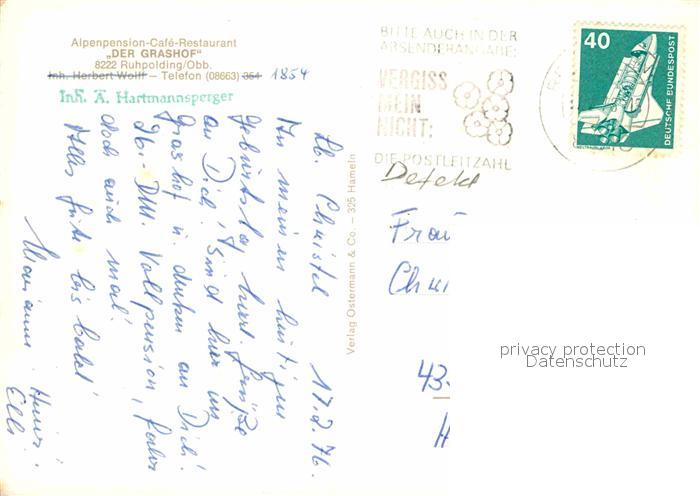 Alpenpension-Café-Restaurant
„DER GRASHOF"
8222 Ruhpolding/Obb.
Inh. Herbert Wolff — Telefon (08663) 354 1854
Inh. Ä. Hartmannsperger
Lb. Christel 17.2.76.
An meinem heutigen
Geburtstag, herzl. Grüße
an Dich! Sind hier im
Grashof u. denken an Dich!
36.- DM. Vollpension, fahr
doch auch mal!
Alles Gute bis bald!
Marianne Heinz!
Elli
Verlag Ostermann & Co. – 325 Hameln
BITTE AUCH IN DER
ABSENDERANGABE:
VERGISS
MEIN
NICHT:
DIE POSTLEITZAHL
40
DEUTSCHE BUNDESPOST
Frau
43
H
privacy protection
Datenschutz